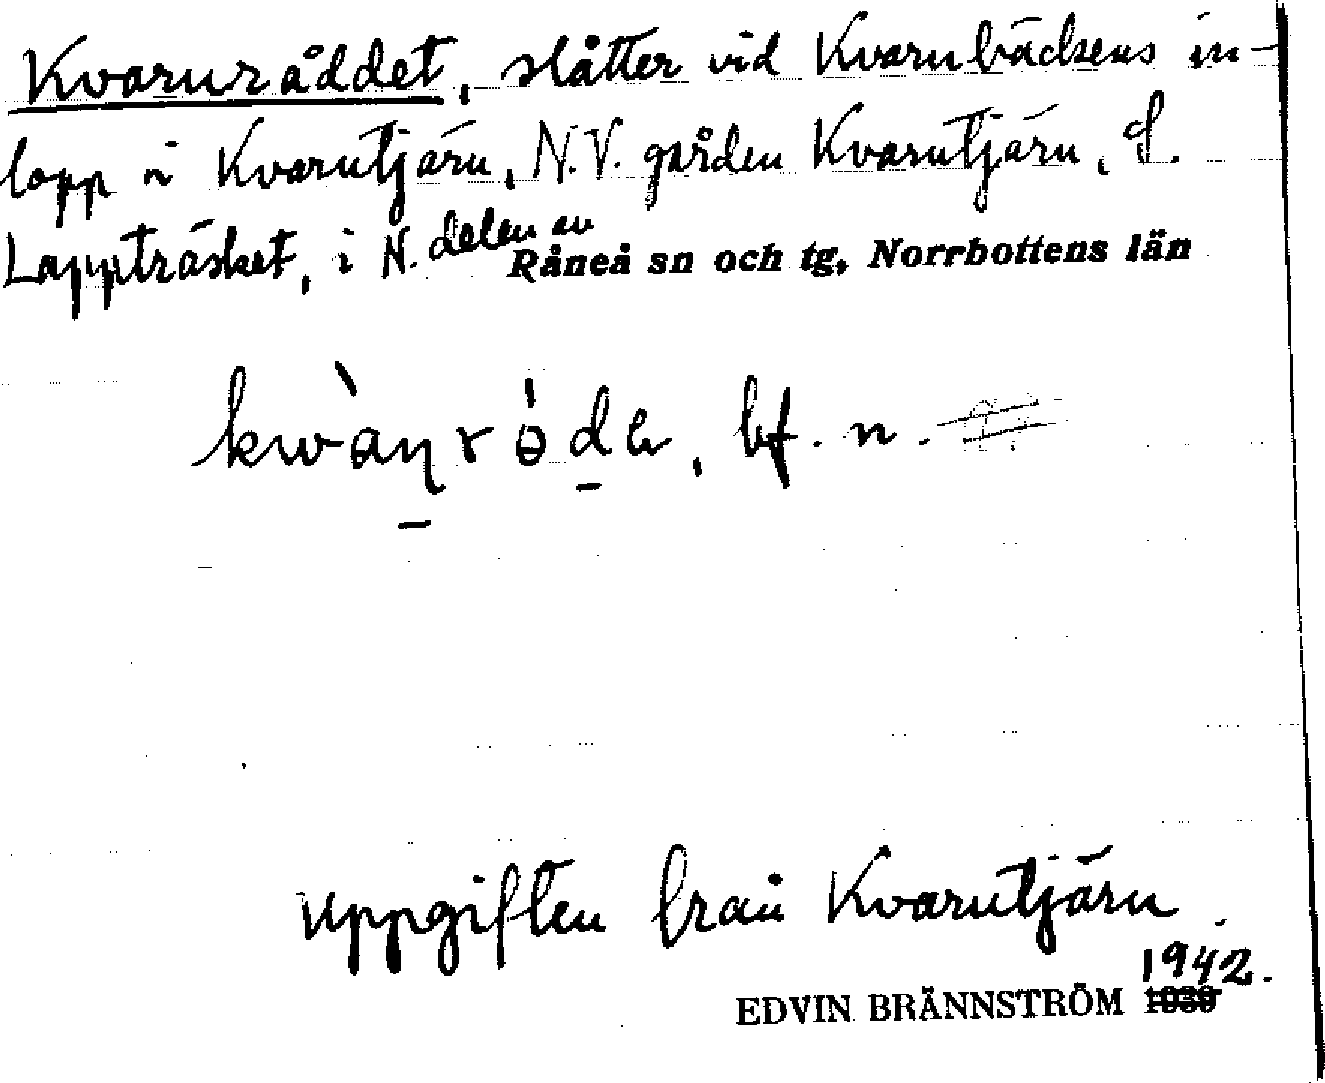 Kvarnråddet, slåtter vid Kvarnbäckens in-
lopp i Kvarntjärn, N.V. gården Kvarntjärn, S.
Lappträsket, i N. delen av
Råneå sn och tg, Norrbottens län
bf. n.
Uppgiften från Kvarntjärn.
1942.
EDVIN BRÄNNSTRÖM 1939